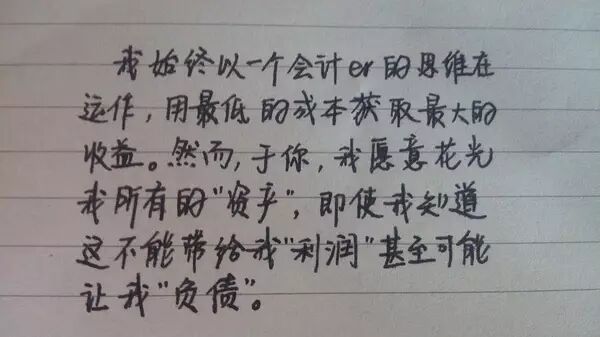 我始终以一个会计er的思维在
运作,用最低的成本获取最大的
收益。然而,于你,我愿意花光
我所有的"资产",即使我知道
这不能带给我"利润"甚至可能
让我"负债"。